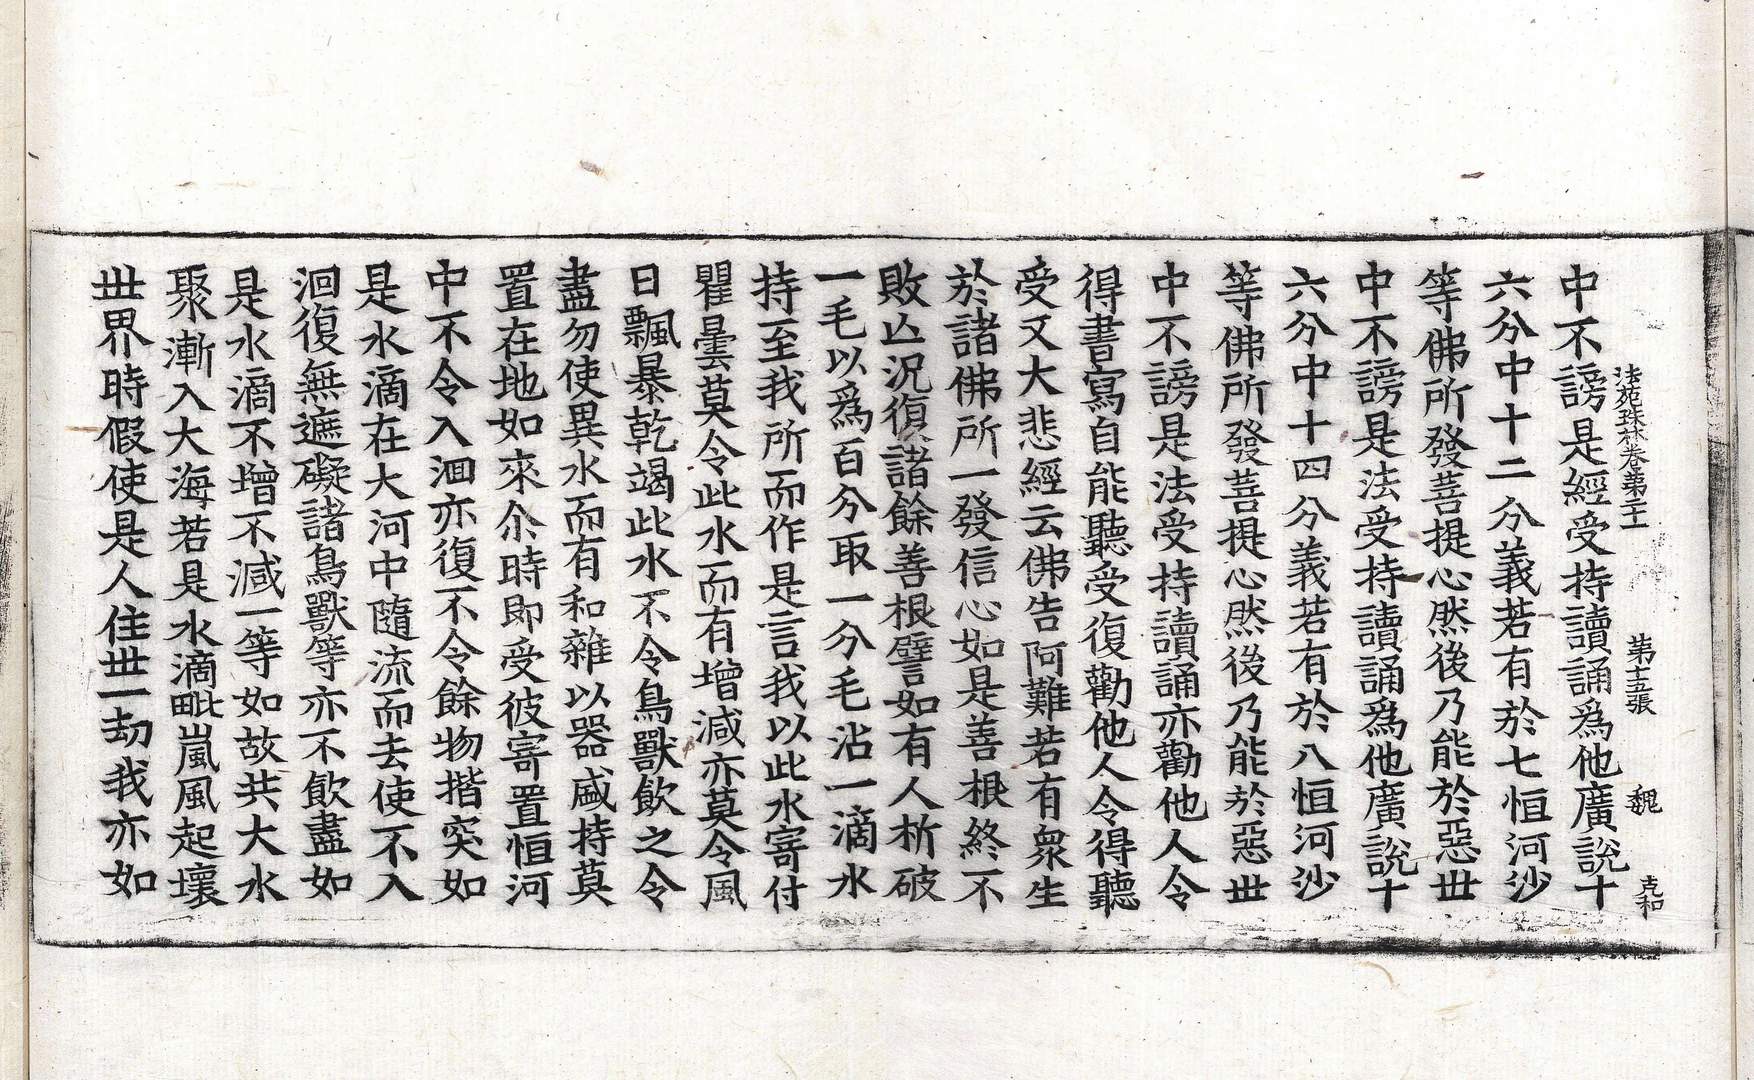 法苑珠林卷第二十一　第十五張　魏　克和
中不謗是經受持讀誦爲他廣說十
六分中十二分義若有於七恒河沙
等佛所發菩提心然後乃能於惡世
中不謗是法受持讀誦爲他廣說十
六分中十四分義若有於八恒河沙
等佛所發菩提心然後乃能於惡世
中不謗是法受持讀誦亦勸他人令
得書寫自能聽受復勸他人令得聽
受又大悲經云佛告阿難若有衆生
於諸佛所一發信心如是善根終不
敗亾況復諸餘善根譬如有人析破
一毛以爲百分取一分毛沾一滴水
持至我所而作是言我以此水寄付
瞿曇莫令此水而有增減亦莫令風
日飄暴乾竭此水不令鳥獸飮之令
盡勿使異水而有和雜以器盛持莫
置在地如來尒時即受彼寄置恒河
中不令入洄亦復不令餘物揩突如
是水滴在大河中隨流而去使不入
洄復無遮礙諸鳥獸等亦不飮盡如
是水滴不增不減一等如故共大水
聚漸入大海若是水滴毗嵐風起壞
世界時假使是人住世一劫我亦如